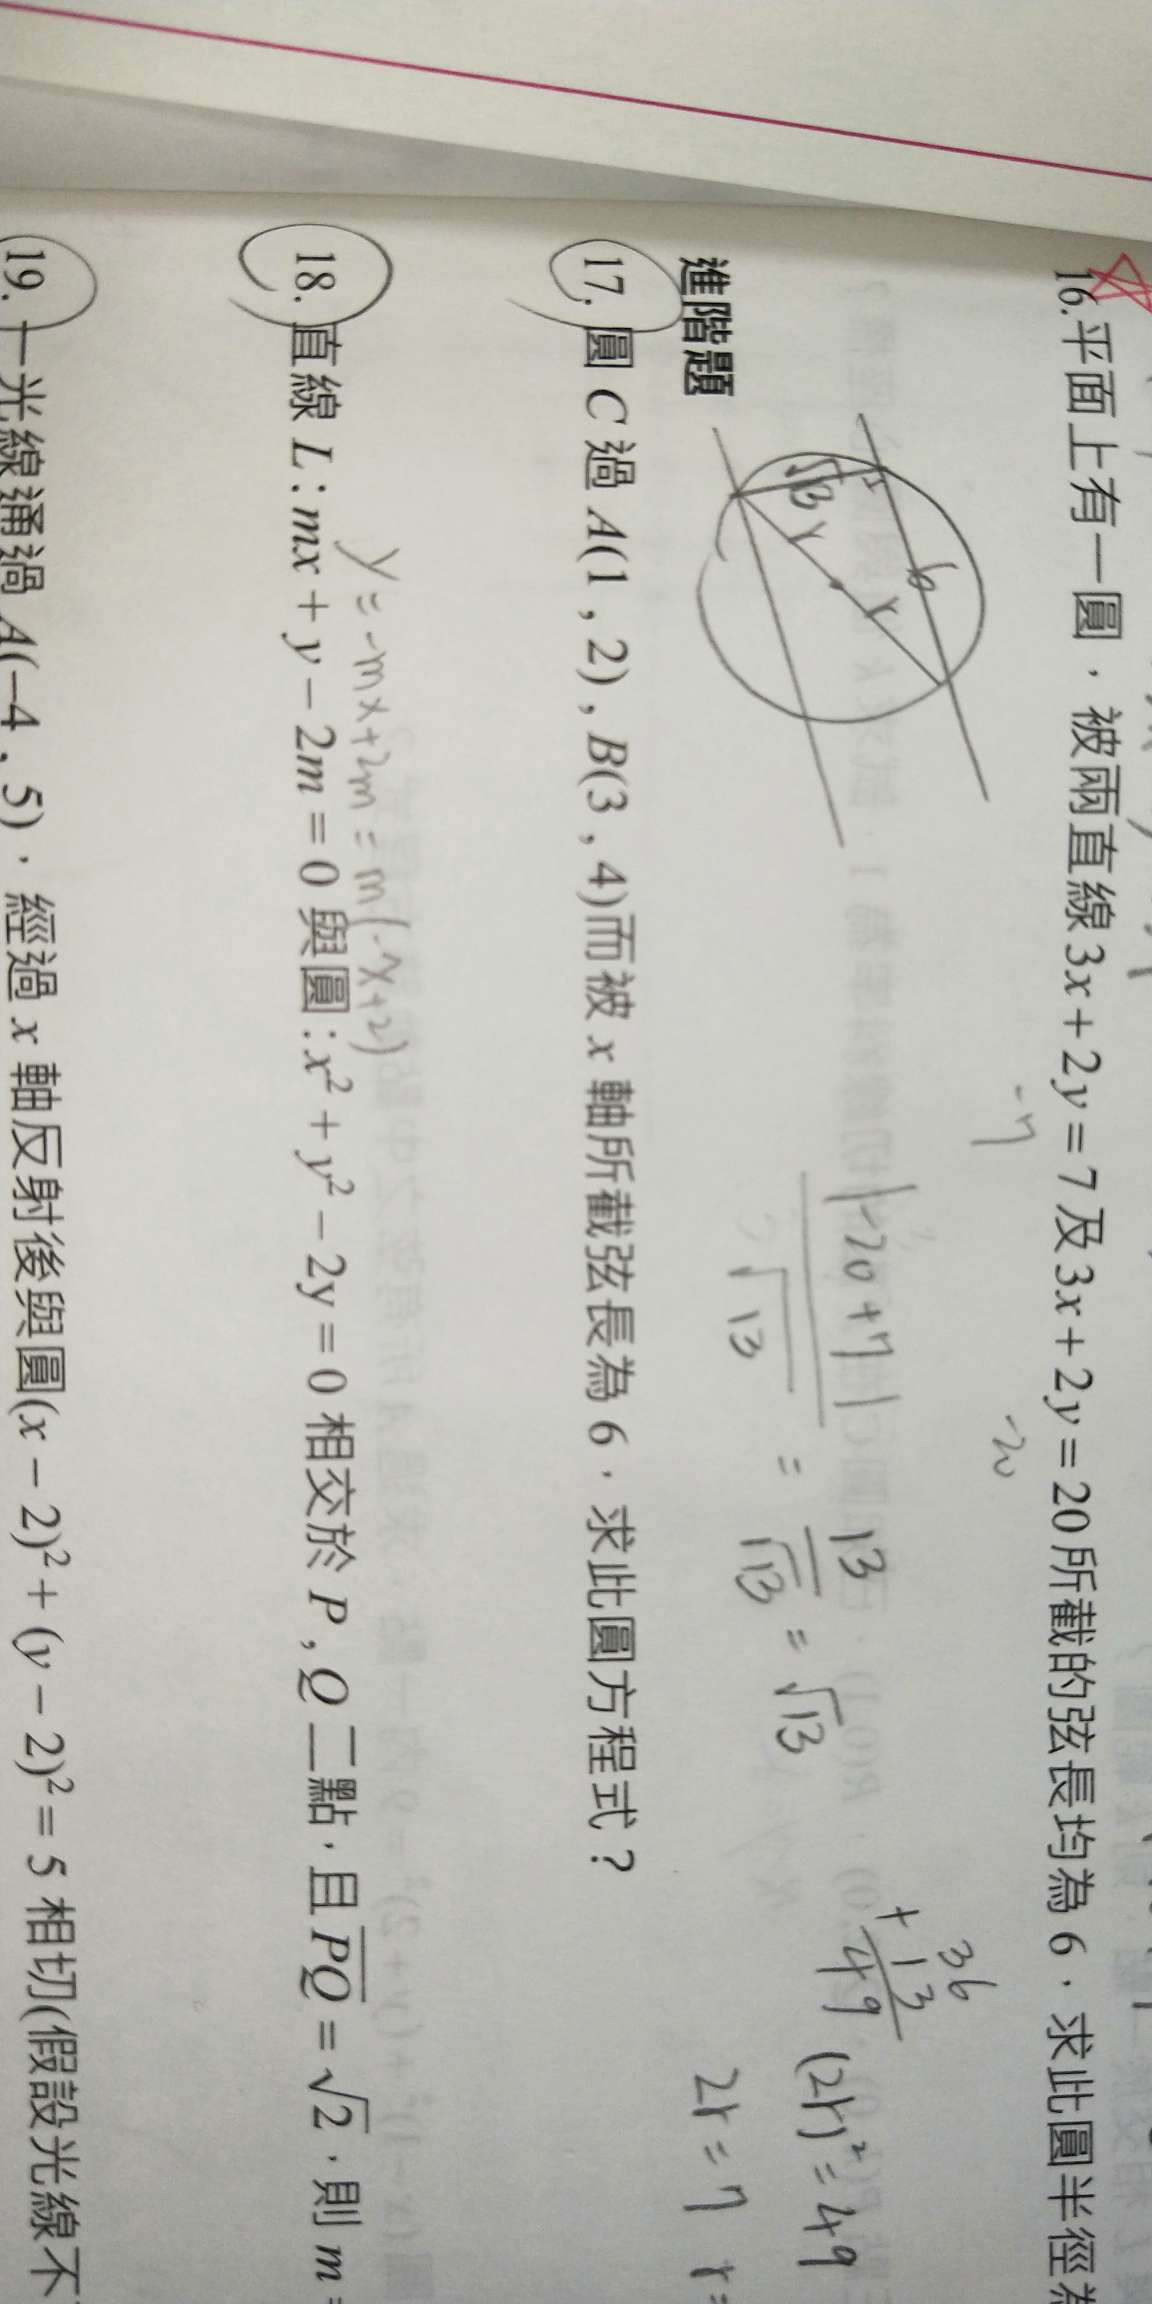 16.平面上有一圓，被兩直線3x+2y=7及3x+2y=20所截的弦長均為6，求此圓半徑
-7
-20
√13
6
r
r
|-20+7|/√13 = 13/√13 = √13
36
+ 13
49
(2r)²=49
2r=7 r=
進階題
17. 圓 C 過 A(1 , 2) , B(3 , 4)而被 x 軸所截弦長為 6，求此圓方程式？
y=-mx+2m=m(-x+2)
18. 直線 L : mx + y − 2m = 0 與圓 : x² + y² − 2y = 0 相交於 P , Q 二點，且 PQ = √2，則 m =
19. 一光線通過 A(−4 , 5)，經過 x 軸反射後與圓(x − 2)² + (y − 2)² = 5 相切(假設光線不